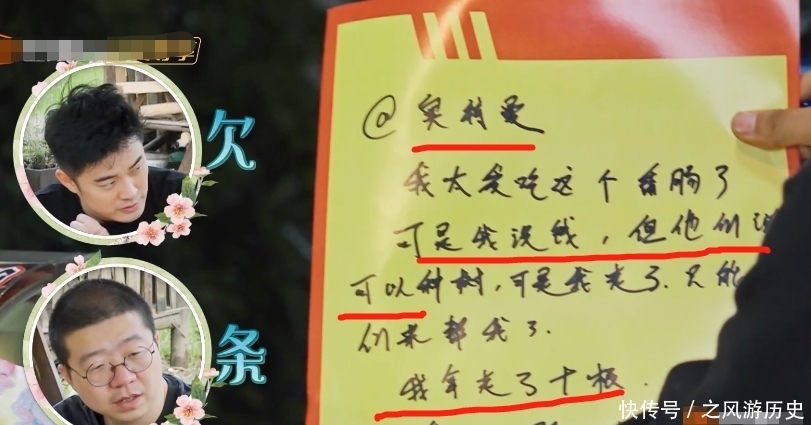 欠
条
@奥特曼
我太爱吃这个香肠了
可是我没钱,但他们说
可以种树,可是我走了.只能
们来帮我了.
我拿走了十根.
快传号/之风游历史